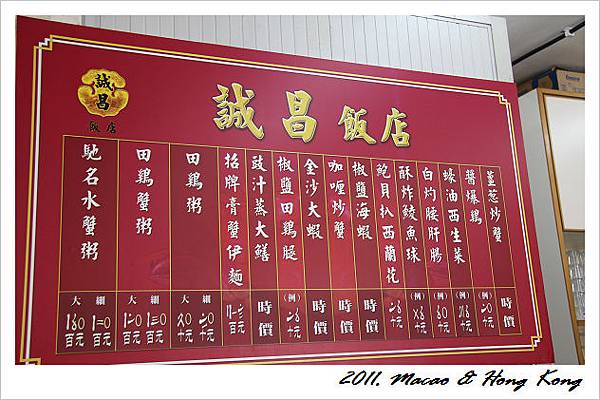 誠昌
飯店
誠昌飯店
薑葱炒蟹
時價
醬爆鷄
(例)
十元
蠔油西生菜
(例)
十元
白灼腰肝腸
(例)
十元
酥炸鮫魚球
(例)
十元
鮑貝扒西蘭花
十元
椒鹽海蝦
時價
咖喱炒蟹
時價
金沙大蝦
時價
椒鹽田鷄腿
(例)
十元
豉汁蒸大鱔
時價
招牌膏蟹伊麵
百元
田鷄粥
大 細
十元 十元
田鷄蟹粥
大 細
百元 百元
馳名水蟹粥
大 細
百元 百元
2011. Macao & Hong Kong